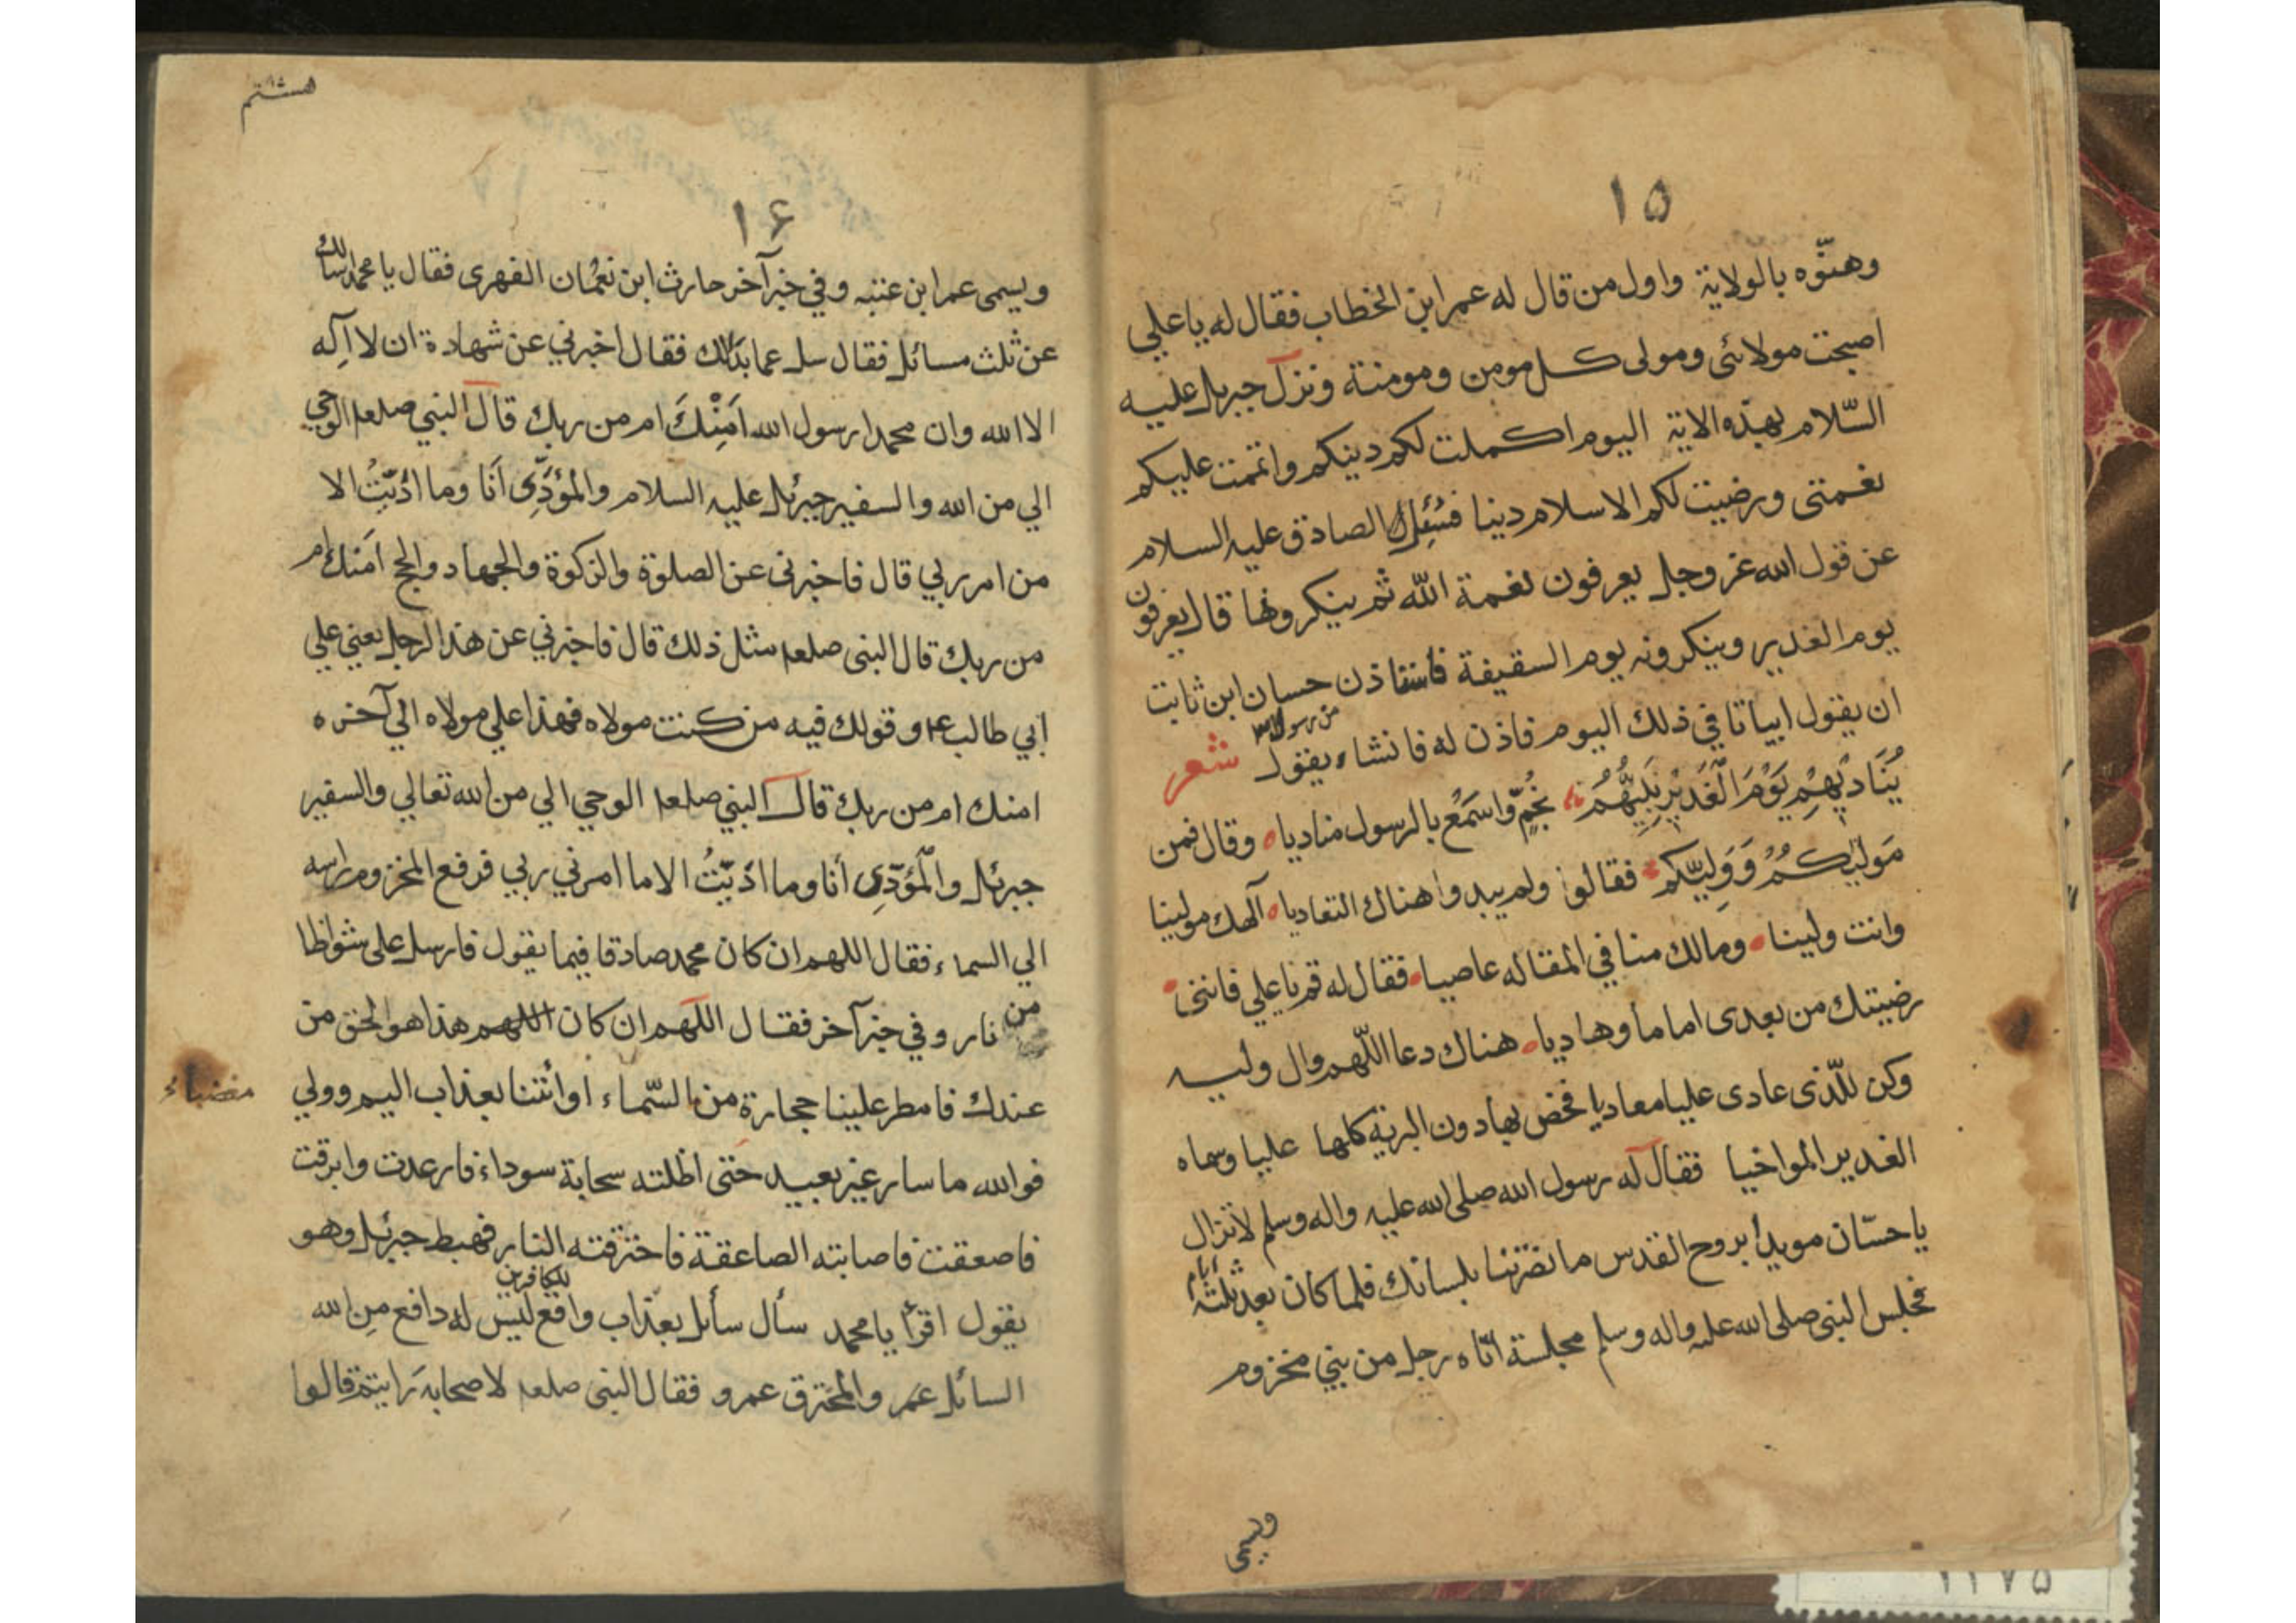 ۱۵
وهنّوه بالولاية واول من قال له عمر ابن الخطاب فقال له يا علي
اصبحت مولائي ومولى كل مومن ومومنة ونزل جبريل عليه
السّلام بهذه الاية اليوم اكملت لكم دينكم واتممت عليكم
نعمتى ورضيت لكم الاسلام دينا فسُئِل الصادق عليه السلام
عن قول الله عز وجل يعرفون نعمة الله ثم ينكرونها قال يعرفون
يوم الغدير وينكرونه يوم السقيفة فأستاذن حسان ابن ثابت
ان يقول ابياتا في ذلك اليوم فاذن له فانشاء يقول شعر
من رسول الله
يُنَادِيهِمْ يَوْمَ الْغَدِيْرِ نَبِيُّهُمْ بخُمٍّ وَاسْمَعْ بالرسول مناديا وقال فمن
مَوليٰكُمْ وَوَلِيّكم فقالوا ولم يبدوا هناك التعاديا آلهك مولينا
وانت ولينا ومالك منا في المقاله عاصيا فقال له قم يا علي فانني
رضيتك من بعدى اماما وهاديا هناك دعا اللّهم وال وليه
وكن للّذى عادى عليا معاديا فخص بها دون البريه كلها عليا وسماه
الغدير المواخيا فقال له رسول الله صلى الله عليه واله وسلم لا تزال
يا حسّان مويدا بروح القدس ما نصرتنا بلسانك فلما كان بعد ثلثة ايام
فجلس النبى صلى الله عليه واله وسلم مجلسة اتاه رجل من بني مخزوم
ويسمى
هشتم
۱۶
ويسمى عمر ابن عتبه وفي خبر آخر حارث ابن نعمان الفهرى فقال يا محمد اسالك
عن ثلث مسائل فقال سل عما بدالك فقال اخبرني عن شهادة ان لا آله
الا الله وان محمدا رسول الله اَمِنْكَ ام من ربك قال النبي صلعم الوحي
الي من الله والسفير جبرئل عليه السلام والمؤدِّى اَنَا وما ادّيتُ الا
من امر ربي قال فاخبرنى عن الصلوة والزكوة والجهاد والحج امنك ام
من ربك قال النبى صلعم مثل ذلك قال فاخبرني عن هذا الرجل يعني علي
ابي طالب ع م وقولك فيه من كنت مولاه فهذا علي مولاه الي آخره
امنك ام من ربك قال النبي صلعم الوحي الي من الله تعالي والسفير
جبرئل والمُؤَدِّى أنا وما ادّيتُ الا ما امرني ربي فرفع المخزوم راسه
الي السماء فقال اللهم ان كان محمد صادقا فيما يقول فارسل على شواظا
من نار وفي خبر آخر فقال اللهم ان كان اللهم هذا هو الحق من
عندك فامطر علينا حجارة من السّماء اوائتنا بعذاب اليم وولي
فوالله ما سار غير بعيد حتى اظلته سحابة سوداء فارعدت وابرقت
فاصعقت فاصابته الصاعقة فاحترقته النار فهبط جبرئل وهو
يقول اقرأ يا محمد سأل سأئل بعذاب واقع للكافرين ليس له دافع من الله
السائل عمر والمحترق عمرو فقال النبى صلعم لاصحابه رايتم قالوا
۱۲۷۵